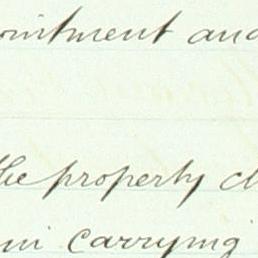 ointment and
the property cl
in carrying